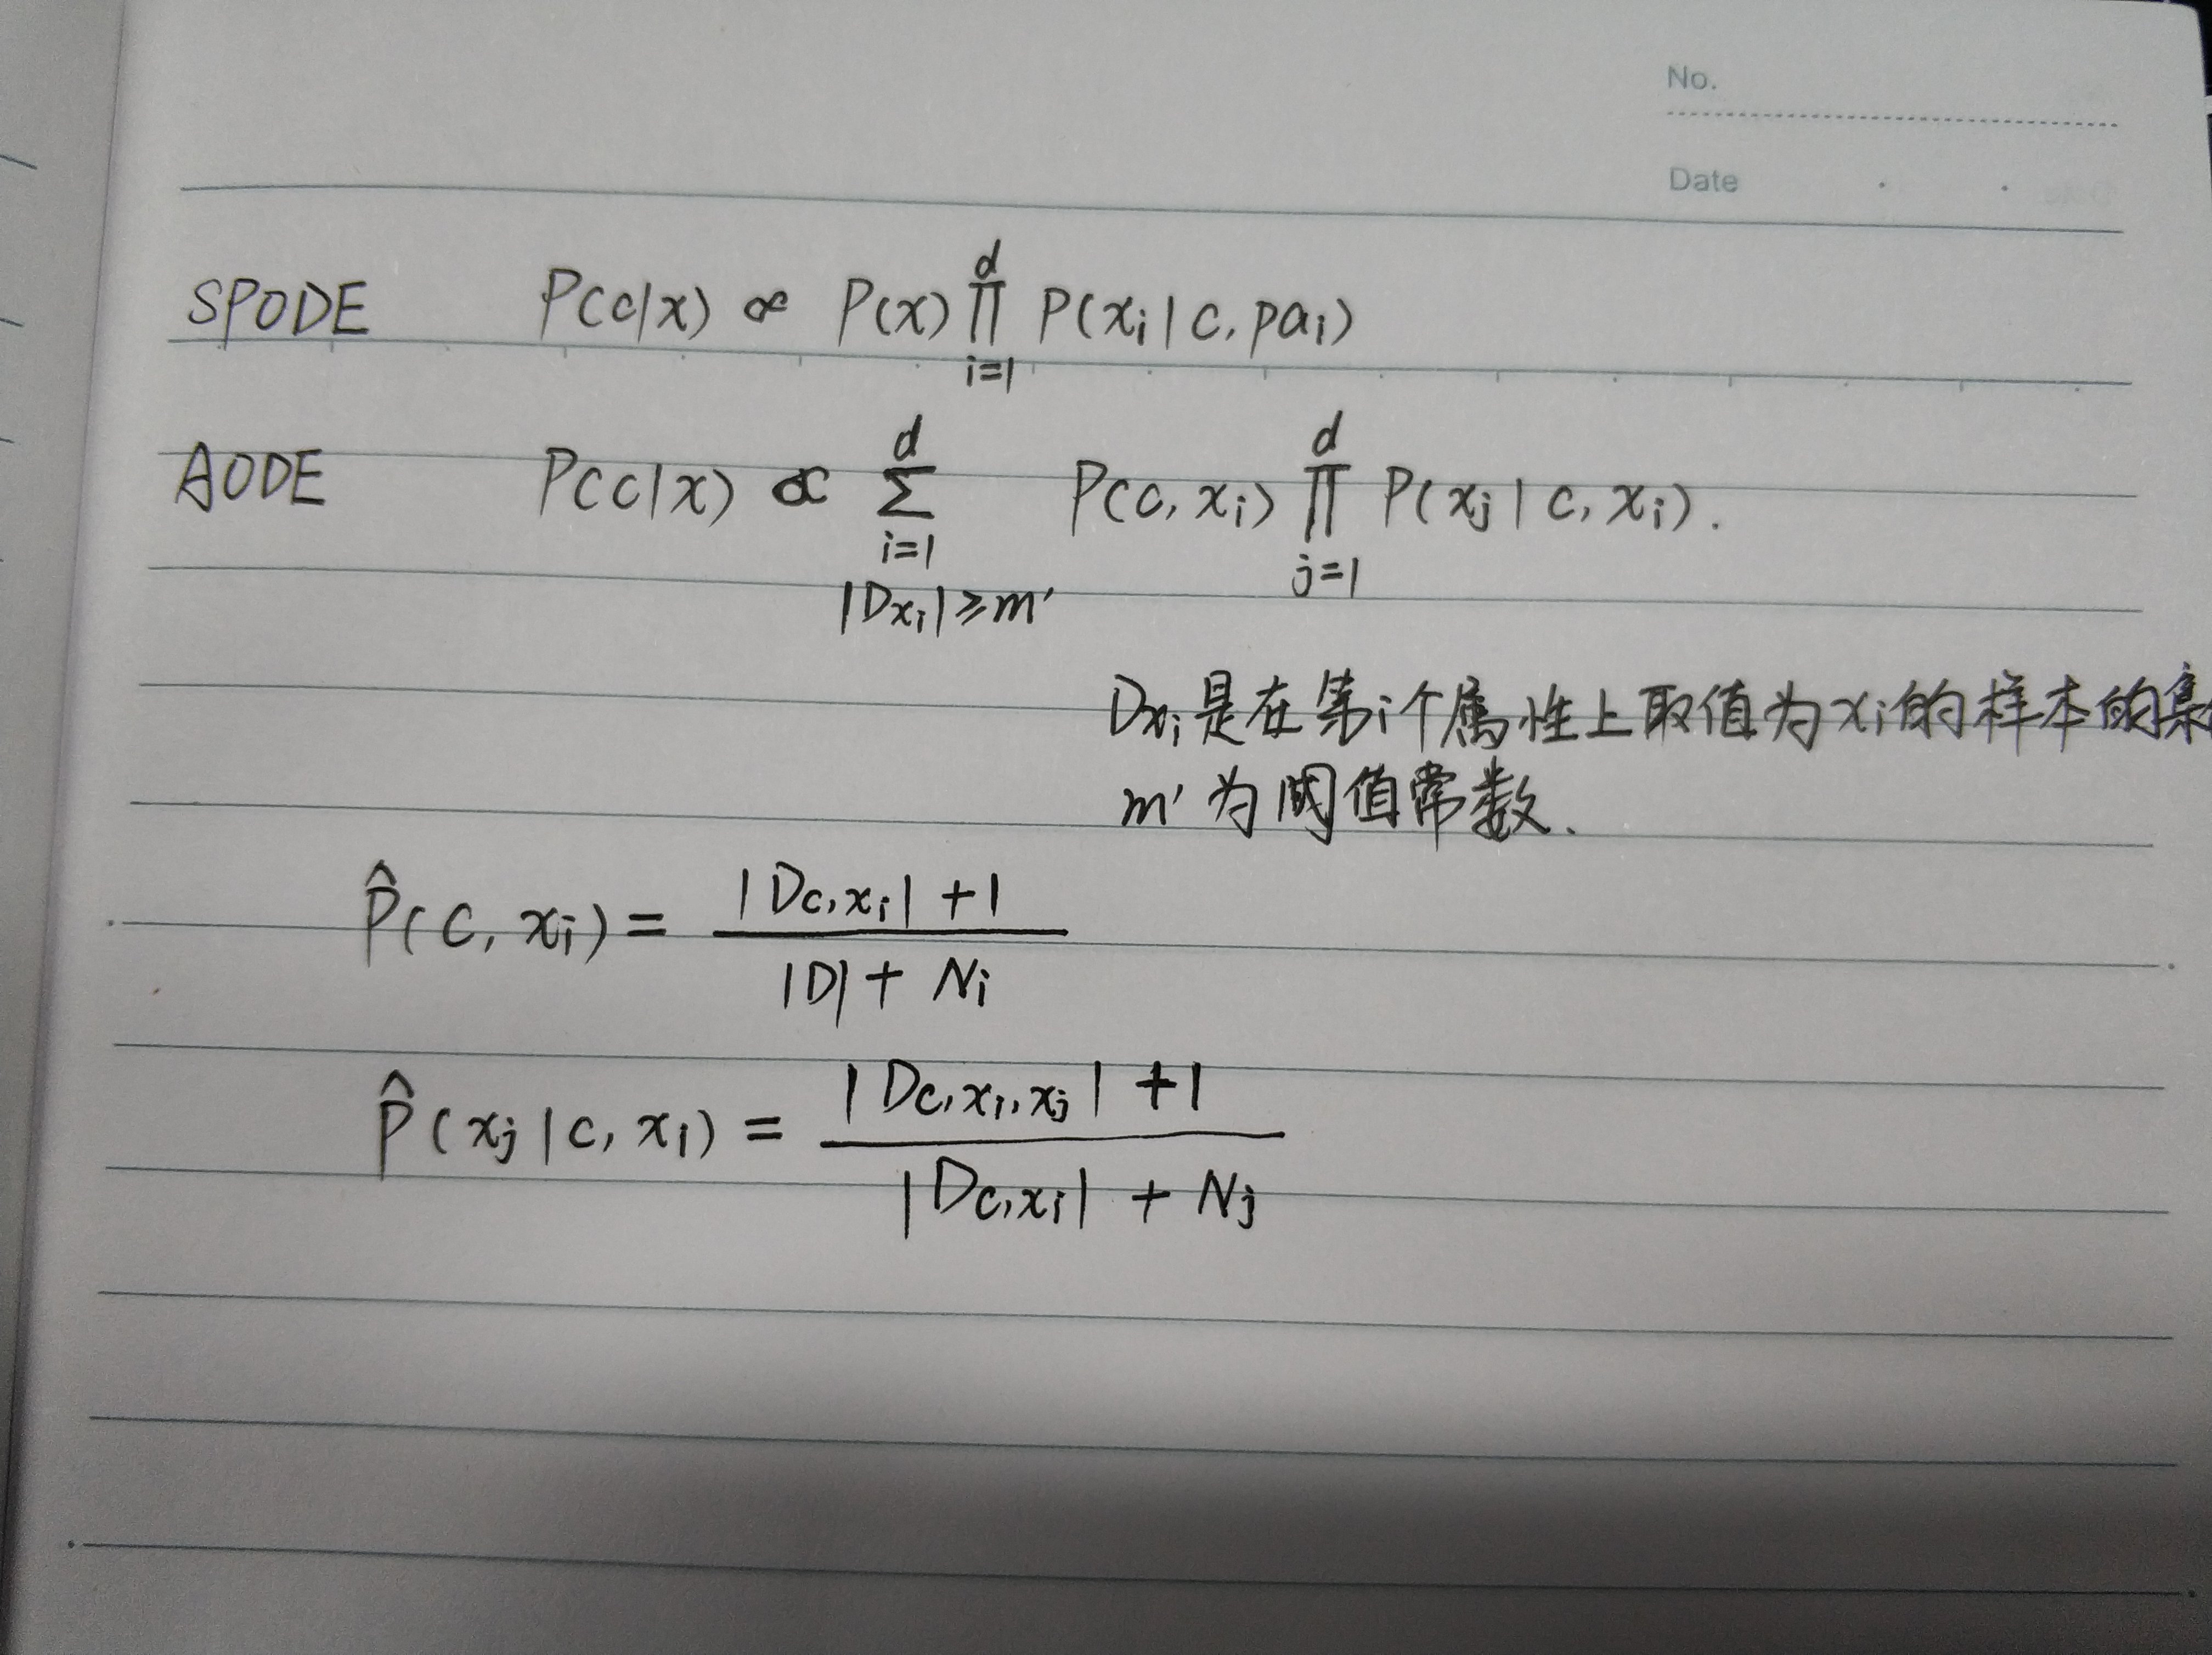 No.
Date
SPODE P(c|x) ∝ P(x) ∏_{i=1}^{d} P(xᵢ|c, paᵢ)
AODE P(c|x) ∝ ∑_{i=1}^{d} P(c, xᵢ) ∏_{j=1}^{d} P(xⱼ|c, xᵢ).
|Dxᵢ|≥m′
Dxᵢ是在第i个属性上取值为xᵢ的样本的集
m′为阈值常数.
P̂(c, xᵢ) = (|Dc,xᵢ| + 1) / (|D| + Nᵢ)
P̂(xⱼ|c, xᵢ) = (|Dc,xᵢ,xⱼ| + 1) / (|Dc,xᵢ| + Nⱼ)